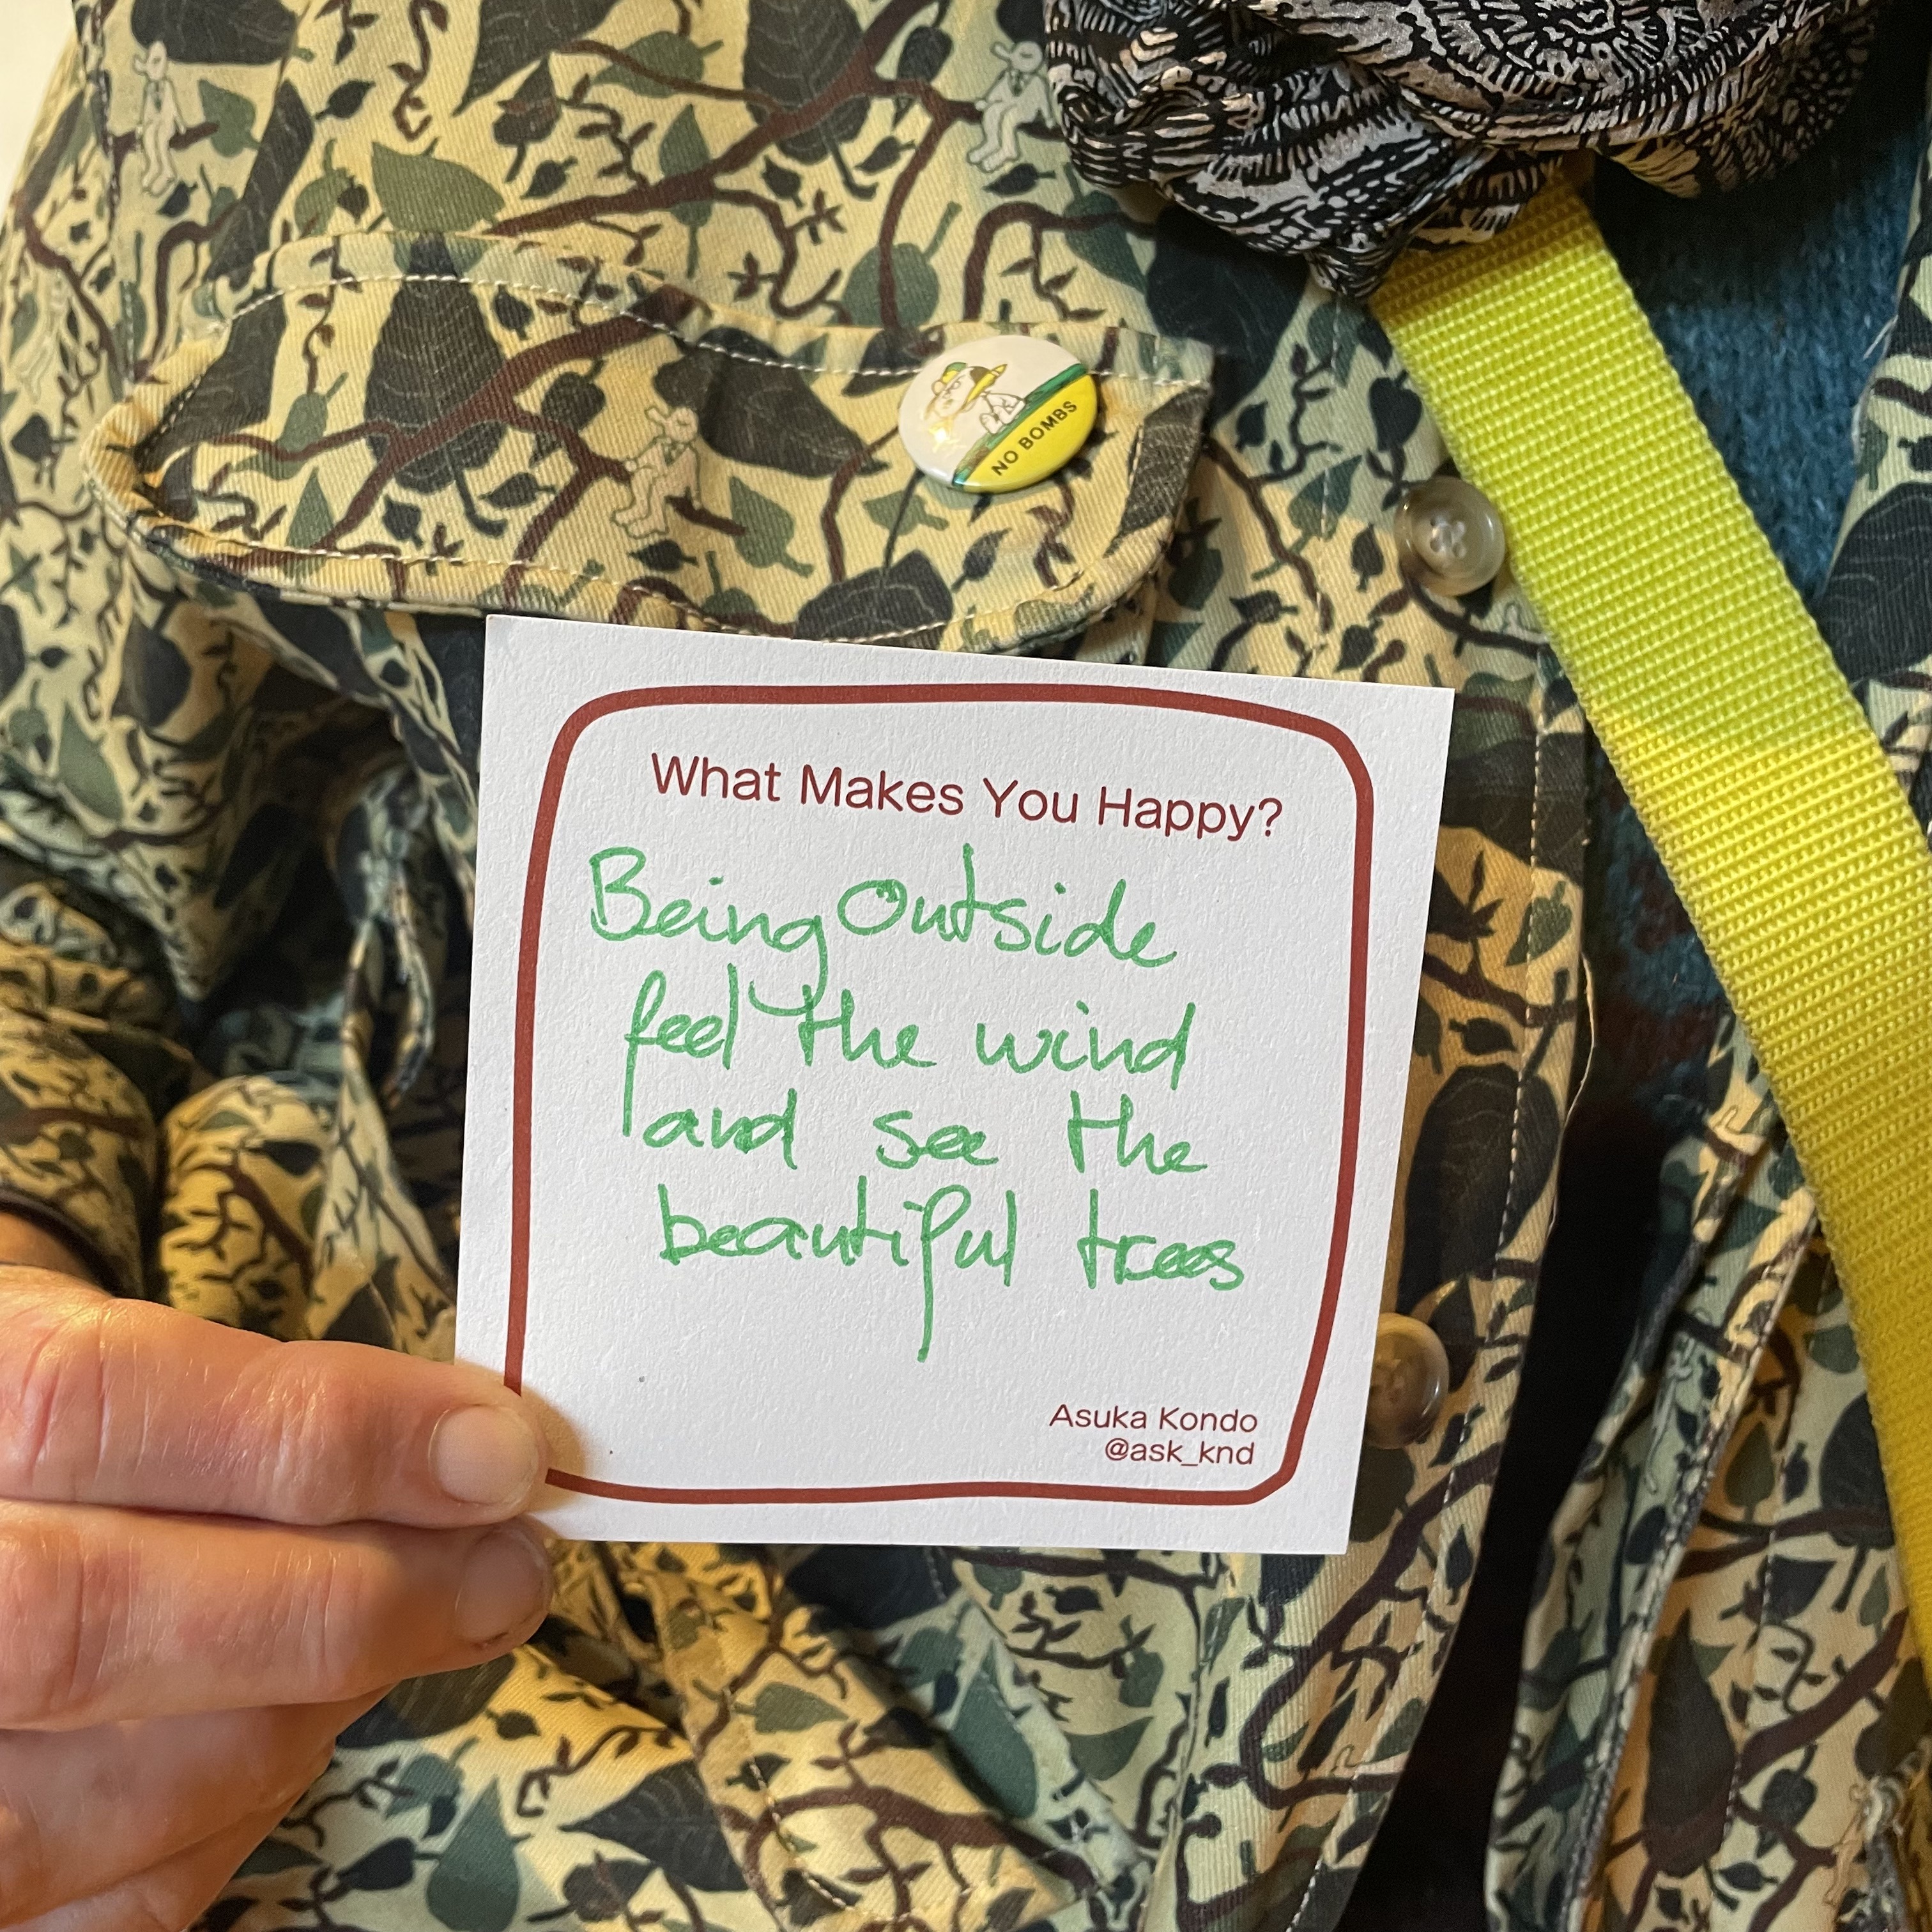 NO BOMBS
What Makes You Happy?
Being Outside
feel the wind
and see the
beautiful trees
Asuka Kondo
@ask_knd